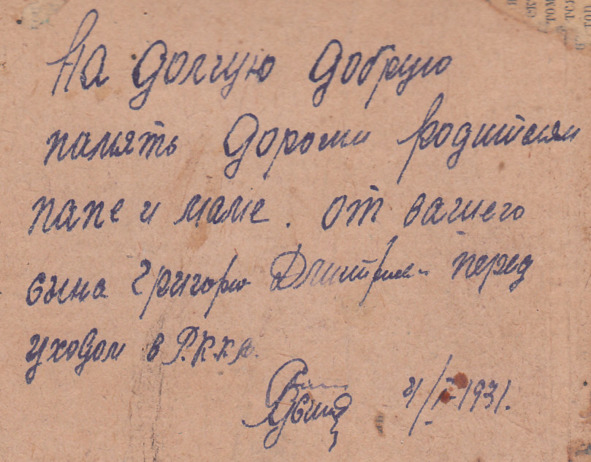 На долгую добрую
память дороги родителям
папе и маме. от вашего
сына Григория Дмитрие. перед
уходом в Р.К.К.А.
1931.